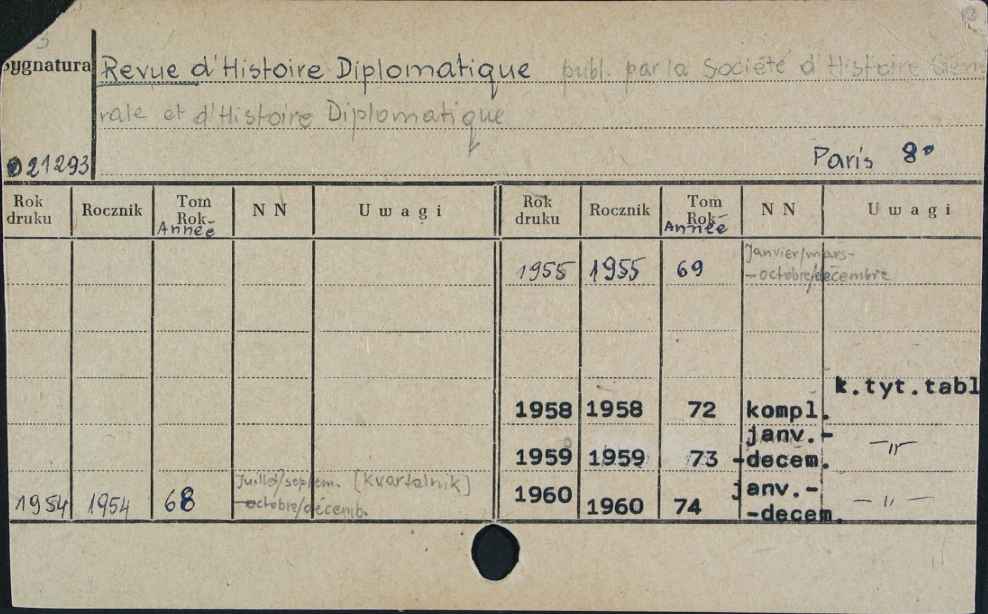 Sygnatura Revue d'Histoire Diplomatique publ. par la Société d'Histoire Géné
rale et d'Histoire Diplomatique
021293 Paris 8°
Rok druku Rocznik Tom Rok- Année NN Uwagi Rok druku Rocznik Tom Rok- Année NN Uwagi
1955 1955 69 Janvier/mars-
-octobre/décembre
k.tyt.tabl
1958 1958 72 kompl.
janv.-
1959 1959 73 -decem. -"-
1954 1954 68 Juillet/septem. [Kwartalnik]
-octobre/décemb.
1960 1960 74 janv.-
-decem. -"-